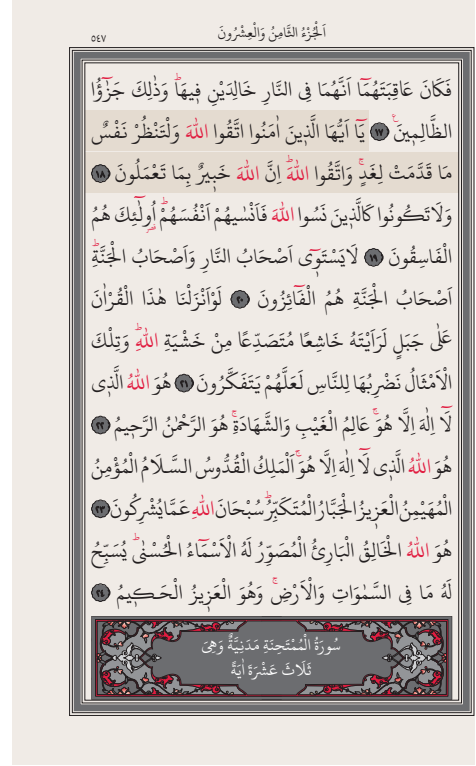 اَلْجُزْءُ الثَّامِنُ وَالْعِشْرُونَ
٥٤٧
فَكَانَ عَاقِبَتَهُمَٓا اَنَّهُمَا فِي النَّارِ خَالِدَيْنِ فٖيهَاؕ وَذٰلِكَ جَزٰٓؤُا
الظَّالِمٖينَ ۟ ﴿١٧﴾ يَٓا اَيُّهَا الَّذٖينَ اٰمَنُوا اتَّقُوا اللّٰهَ وَلْتَنْظُرْ نَفْسٌ
مَا قَدَّمَتْ لِغَدٍۚ وَاتَّقُوا اللّٰهَؕ اِنَّ اللّٰهَ خَبٖيرٌ بِمَا تَعْمَلُونَ ﴿١٨﴾
وَلَا تَكُونُوا كَالَّذٖينَ نَسُوا اللّٰهَ فَاَنْسٰيهُمْ اَنْفُسَهُمْؕ اُولٰٓئِكَ هُمُ
الْفَاسِقُونَ ﴿١٩﴾ لَا يَسْتَوٖٓي اَصْحَابُ النَّارِ وَاَصْحَابُ الْجَنَّةِؕ
اَصْحَابُ الْجَنَّةِ هُمُ الْفَٓائِزُونَ ﴿٢٠﴾ لَوْ اَنْزَلْنَا هٰذَا الْقُرْاٰنَ
عَلٰى جَبَلٍ لَرَاَيْتَهُ خَاشِعًا مُتَصَدِّعًا مِنْ خَشْيَةِ اللّٰهِؕ وَتِلْكَ
الْاَمْثَالُ نَضْرِبُهَا لِلنَّاسِ لَعَلَّهُمْ يَتَفَكَّرُونَ ﴿٢١﴾ هُوَ اللّٰهُ الَّذٖي
لَٓا اِلٰهَ اِلَّا هُوَۚ عَالِمُ الْغَيْبِ وَالشَّهَادَةِۚ هُوَ الرَّحْمٰنُ الرَّحٖيمُ ﴿٢٢﴾
هُوَ اللّٰهُ الَّذٖي لَٓا اِلٰهَ اِلَّا هُوَۚ اَلْمَلِكُ الْقُدُّوسُ السَّلَامُ الْمُؤْمِنُ
الْمُهَيْمِنُ الْعَزٖيزُ الْجَبَّارُ الْمُتَكَبِّرُؕ سُبْحَانَ اللّٰهِ عَمَّا يُشْرِكُونَ ﴿٢٣﴾
هُوَ اللّٰهُ الْخَالِقُ الْبَارِئُ الْمُصَوِّرُ لَهُ الْاَسْمَٓاءُ الْحُسْنٰىؕ يُسَبِّحُ
لَهُ مَا فِي السَّمٰوَاتِ وَالْاَرْضِۚ وَهُوَ الْعَزٖيزُ الْحَكٖيمُ ﴿٢٤﴾
سُورَةُ الْمُمْتَحِنَةِ مَدَنِيَّةٌ وَهِيَ
ثَلَاثَ عَشْرَةَ اٰيَةً